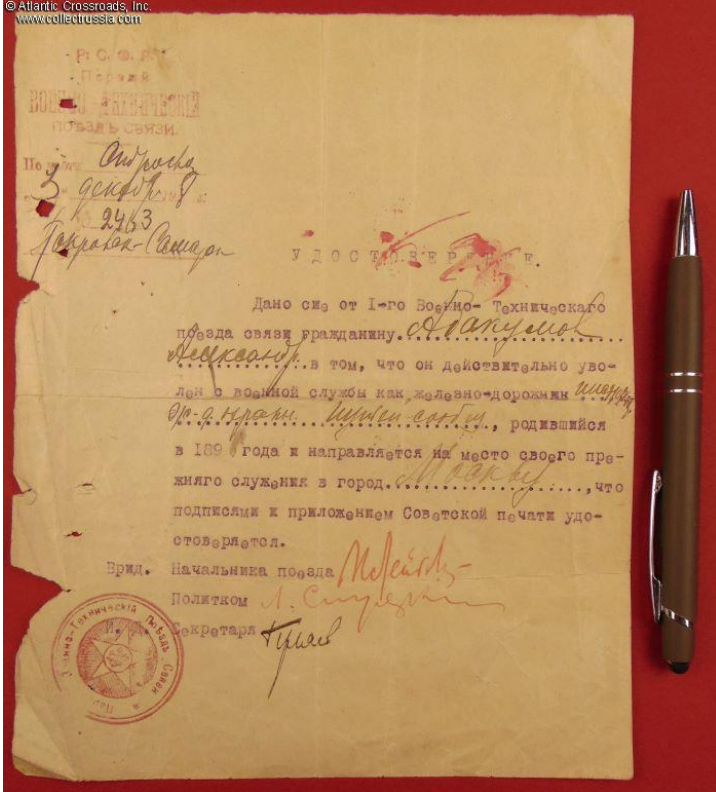 © Atlantic Crossroads, Inc.
www.collectrussia.com
Р. С. Ф. Р.
Первый
ПОѢЗДЪ СВЯЗИ.
3 декабр 8
2463
УДОСТОВЕРЕНИЕ.
Дано сие от I-го Военно-Техническаго
поезда связи гражданину. Абакумов
Александр. в том, что он действительно уво-
лен с военной службы как железно-дорожник
родившийся
в 189 года и направляется на место своего пре-
жняго служения в город. Москву, что
подписями и приложением Советской печати удо-
стоверяется.
Врид. Начальника поезда
Политком
И. Д. Секретаря
Военно-Техническій Поѣздъ Связи